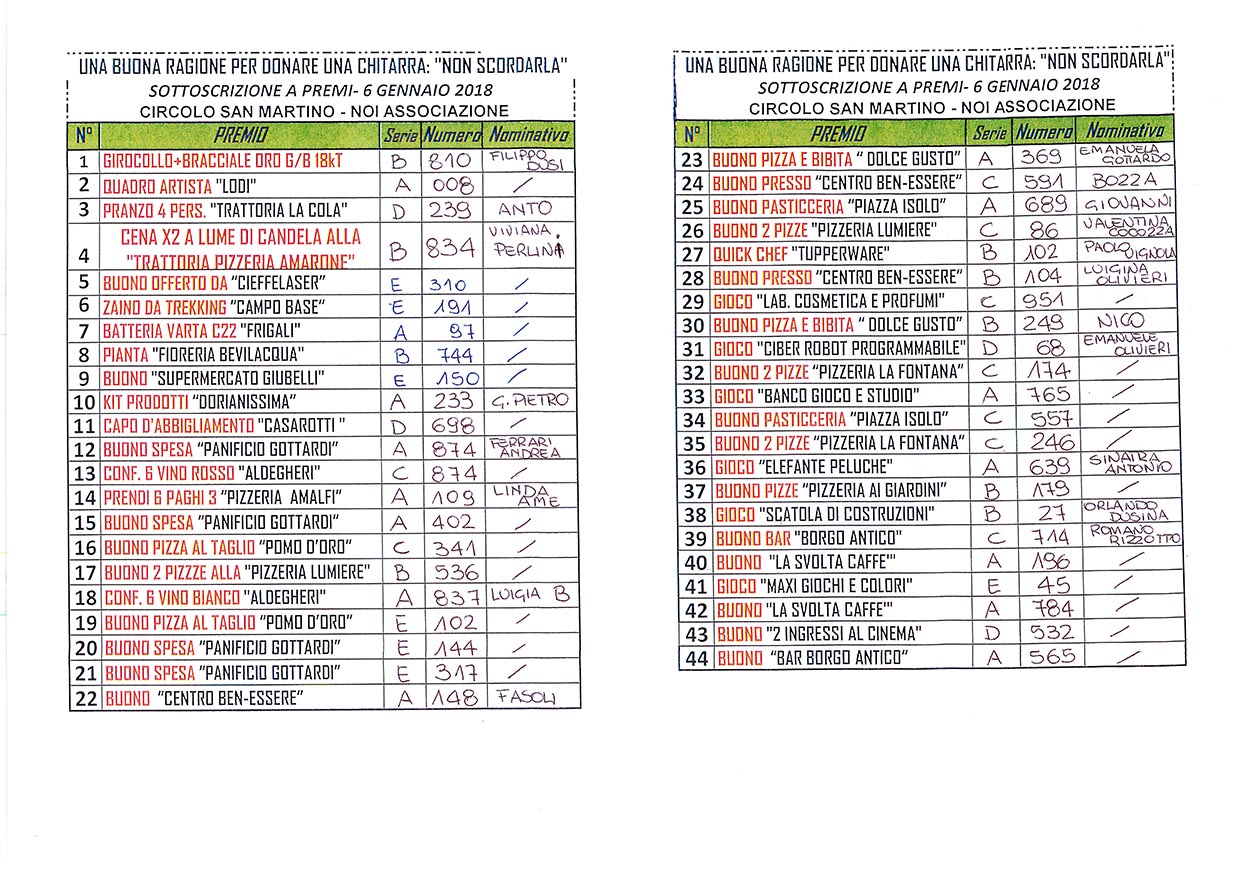 UNA BUONA RAGIONE PER DONARE UNA CHITARRA: "NON SCORDARLA"
SOTTOSCRIZIONE A PREMI- 6 GENNAIO 2018
CIRCOLO SAN MARTINO - NOI ASSOCIAZIONE
N° PREMIO Serie Numero Nominativo
1 GIROCOLLO+BRACCIALE ORO G/B 18kT B 810 FILIPPO DUSI
2 QUADRO ARTISTA "LODI" A 008 /
3 PRANZO 4 PERS. "TRATTORIA LA COLA" D 239 ANTO
4 CENA X2 A LUME DI CANDELA ALLA "TRATTORIA PIZZERIA AMARONE" B 834 VIVIANA. PERLINA
5 BUONO OFFERTO DA "CIEFFELASER" E 310 /
6 ZAINO DA TREKKING "CAMPO BASE" E 191 /
7 BATTERIA VARTA C22 "FRIGALI" A 97 /
8 PIANTA "FIORERIA BEVILACQUA" B 744 /
9 BUONO "SUPERMERCATO GIUBELLI" E 150 /
10 KIT PRODOTTI "DORIANISSIMA" A 233 G. PIETRO
11 CAPO D'ABBIGLIAMENTO "CASAROTTI " D 698 /
12 BUONO SPESA "PANIFICIO GOTTARDI" A 874 FERRARI ANDREA
13 CONF. 6 VINO ROSSO "ALDEGHERI" C 874 /
14 PRENDI 6 PAGHI 3 "PIZZERIA AMALFI" A 109 LINDA AME
15 BUONO SPESA "PANIFICIO GOTTARDI" A 402 /
16 BUONO PIZZA AL TAGLIO "POMO D'ORO" C 341 /
17 BUONO 2 PIZZZE ALLA "PIZZERIA LUMIERE" B 536 /
18 CONF. 6 VINO BIANCO "ALDEGHERI" A 837 LUIGIA B
19 BUONO PIZZA AL TAGLIO "POMO D'ORO" E 102 /
20 BUONO SPESA "PANIFICIO GOTTARDI" E 144 /
21 BUONO SPESA "PANIFICIO GOTTARDI" E 317 /
22 BUONO "CENTRO BEN-ESSERE" A 148 FASOLI
UNA BUONA RAGIONE PER DONARE UNA CHITARRA: "NON SCORDARLA"
SOTTOSCRIZIONE A PREMI- 6 GENNAIO 2018
CIRCOLO SAN MARTINO - NOI ASSOCIAZIONE
N° PREMIO Serie Numero Nominativo
23 BUONO PIZZA E BIBITA " DOLCE GUSTO" A 369 EMANUELA GOTTARDO
24 BUONO PRESSO "CENTRO BEN-ESSERE" C 591 BOZZA
25 BUONO PASTICCERIA "PIAZZA ISOLO" A 689 GIOVANNI
26 BUONO 2 PIZZE "PIZZERIA LUMIERE" C 86 VALENTINA COCOZZA
27 QUICK CHEF "TUPPERWARE" B 102 PAOLO VIGNOLA
28 BUONO PRESSO "CENTRO BEN-ESSERE" B 104 LUIGINA OLIVIERI
29 GIOCO "LAB. COSMETICA E PROFUMI" C 951 /
30 BUONO PIZZA E BIBITA " DOLCE GUSTO" B 249 NICO
31 GIOCO "CIBER ROBOT PROGRAMMABILE" D 68 EMANUELE OLIVIERI
32 BUONO 2 PIZZE "PIZZERIA LA FONTANA" C 174 /
33 GIOCO "BANCO GIOCO E STUDIO" A 765 /
34 BUONO PASTICCERIA "PIAZZA ISOLO" C 557 /
35 BUONO 2 PIZZE "PIZZERIA LA FONTANA" C 246 /
36 GIOCO "ELEFANTE PELUCHE" A 639 SINATRA ANTONIO
37 BUONO PIZZE "PIZZERIA AI GIARDINI" B 179 /
38 GIOCO "SCATOLA DI COSTRUZIONI" B 27 ORLANDO DUSINA
39 BUONO BAR "BORGO ANTICO" C 714 ROMANO RIZZOTTO
40 BUONO "LA SVOLTA CAFFE'" A 196 /
41 GIOCO "MAXI GIOCHI E COLORI" E 45 /
42 BUONO "LA SVOLTA CAFFE'" A 784 /
43 BUONO "2 INGRESSI AL CINEMA" D 532 /
44 BUONO "BAR BORGO ANTICO" A 565 /